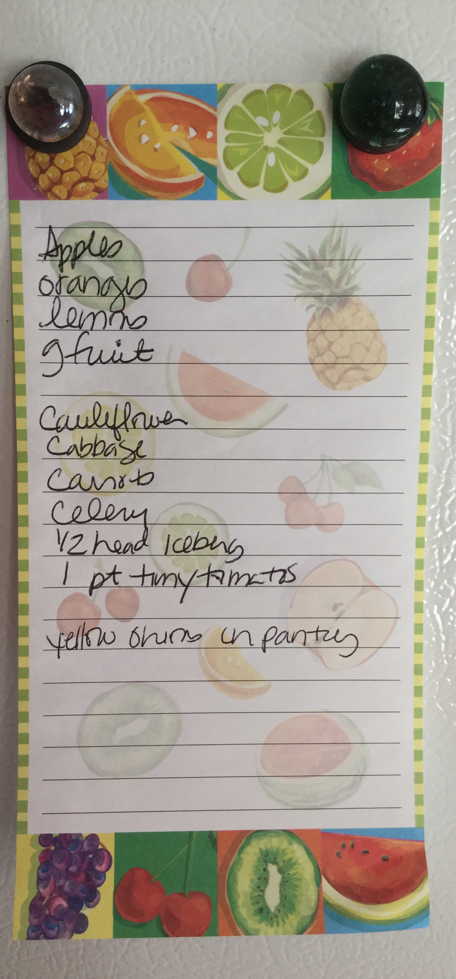 Apples
oranges
lemons
gfruit
Cauliflower
Cabbage
Carrots
Celery
1/2 head Iceberg
1 pt tiny tomatos
yellow onions in pantry